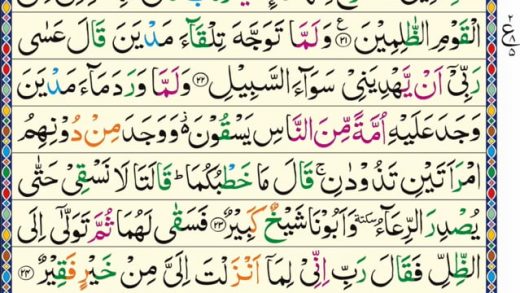 الۡقَوۡمِ الظّٰلِمِیۡنَ ﴿۲۱﴾ وَلَمَّا تَوَجَّهَ تِلۡقَآءَ مَدۡیَنَ قَالَ عَسٰی
رَبِّیۡۤ اَنۡ یَّهۡدِیَنِیۡ سَوَآءَ السَّبِیۡلِ ﴿۲۲﴾ وَلَمَّا وَرَدَ مَآءَ مَدۡیَنَ
وَجَدَ عَلَیۡهِ اُمَّةً مِّنَ النَّاسِ یَسۡقُوۡنَ ۬ وَوَجَدَ مِنۡ دُوۡنِهِمُ
امۡرَاَتَیۡنِ تَذُوۡدٰنِ ۚ قَالَ مَا خَطۡبُکُمَا ؕ قَالَتَا لَا نَسۡقِیۡ حَتّٰی
یُصۡدِرَ الرِّعَآءُ سكتة وَاَبُوۡنَا شَیۡخٌ کَبِیۡرٌ ﴿۲۳﴾ فَسَقٰی لَهُمَا ثُمَّ تَوَلّٰۤی اِلَی
الظِّلِّ فَقَالَ رَبِّ اِنِّیۡ لِمَاۤ اَنۡزَلۡتَ اِلَیَّ مِنۡ خَیۡرٍ فَقِیۡرٌ ﴿۲۴﴾